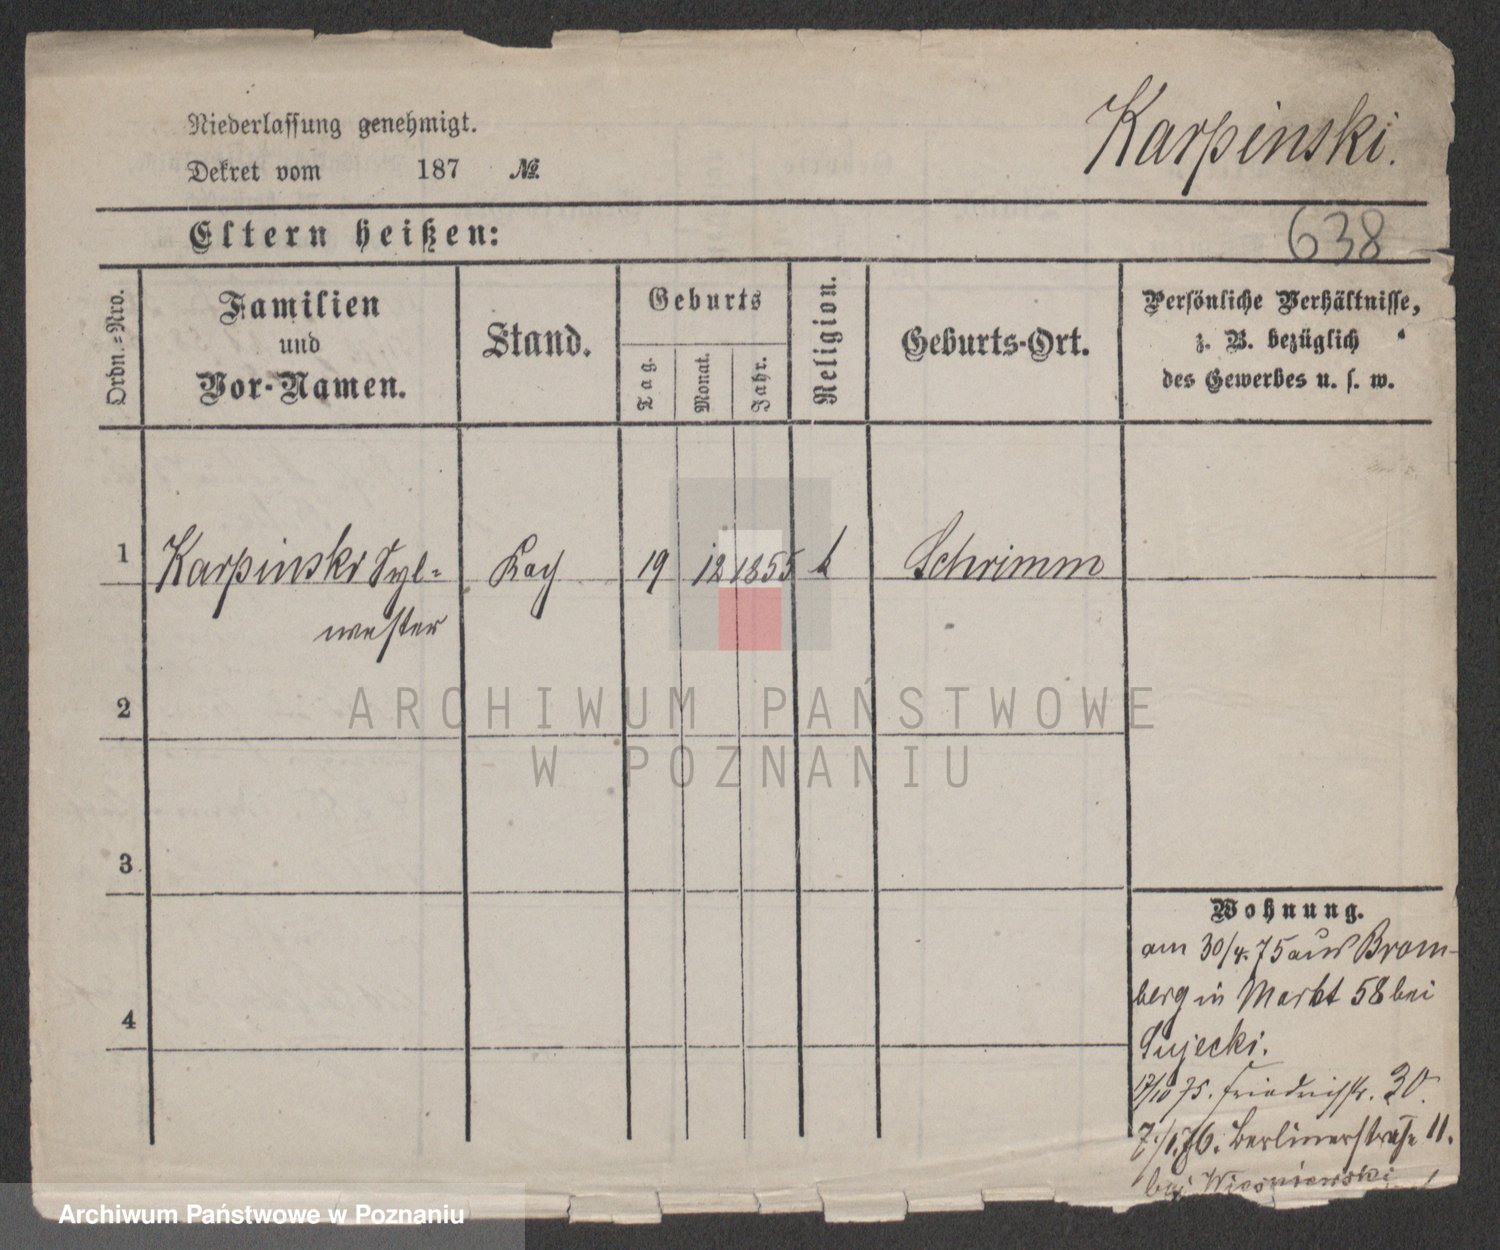 Niederlassung genehmigt.
Karpinski.
Dekret vom 187 №
Eltern heißen:
638
Ordn.-Nro.
Familien
und
Vor-Namen.
Stand.
Geburts
Tag.
Monat.
Jahr.
Religion.
Geburts-Ort.
Persönliche Verhältnisse,
z. B. bezüglich
des Gewerbes u. s. w.
1 Karpinski Syl- 19 12 1855 k Schrimm
wester
2
3
4
Wohnung.
am 30/4. 75 aus Brom-
berg in Markt 58 bei
Sujecki.
17/10 75. Friedrichstr. 30.
7./1. 76. Berlinerstraße 11.
bei Wiesniewski
ARCHIWUM PAŃSTWOWE
W POZNANIU
Archiwum Państwowe w Poznaniu